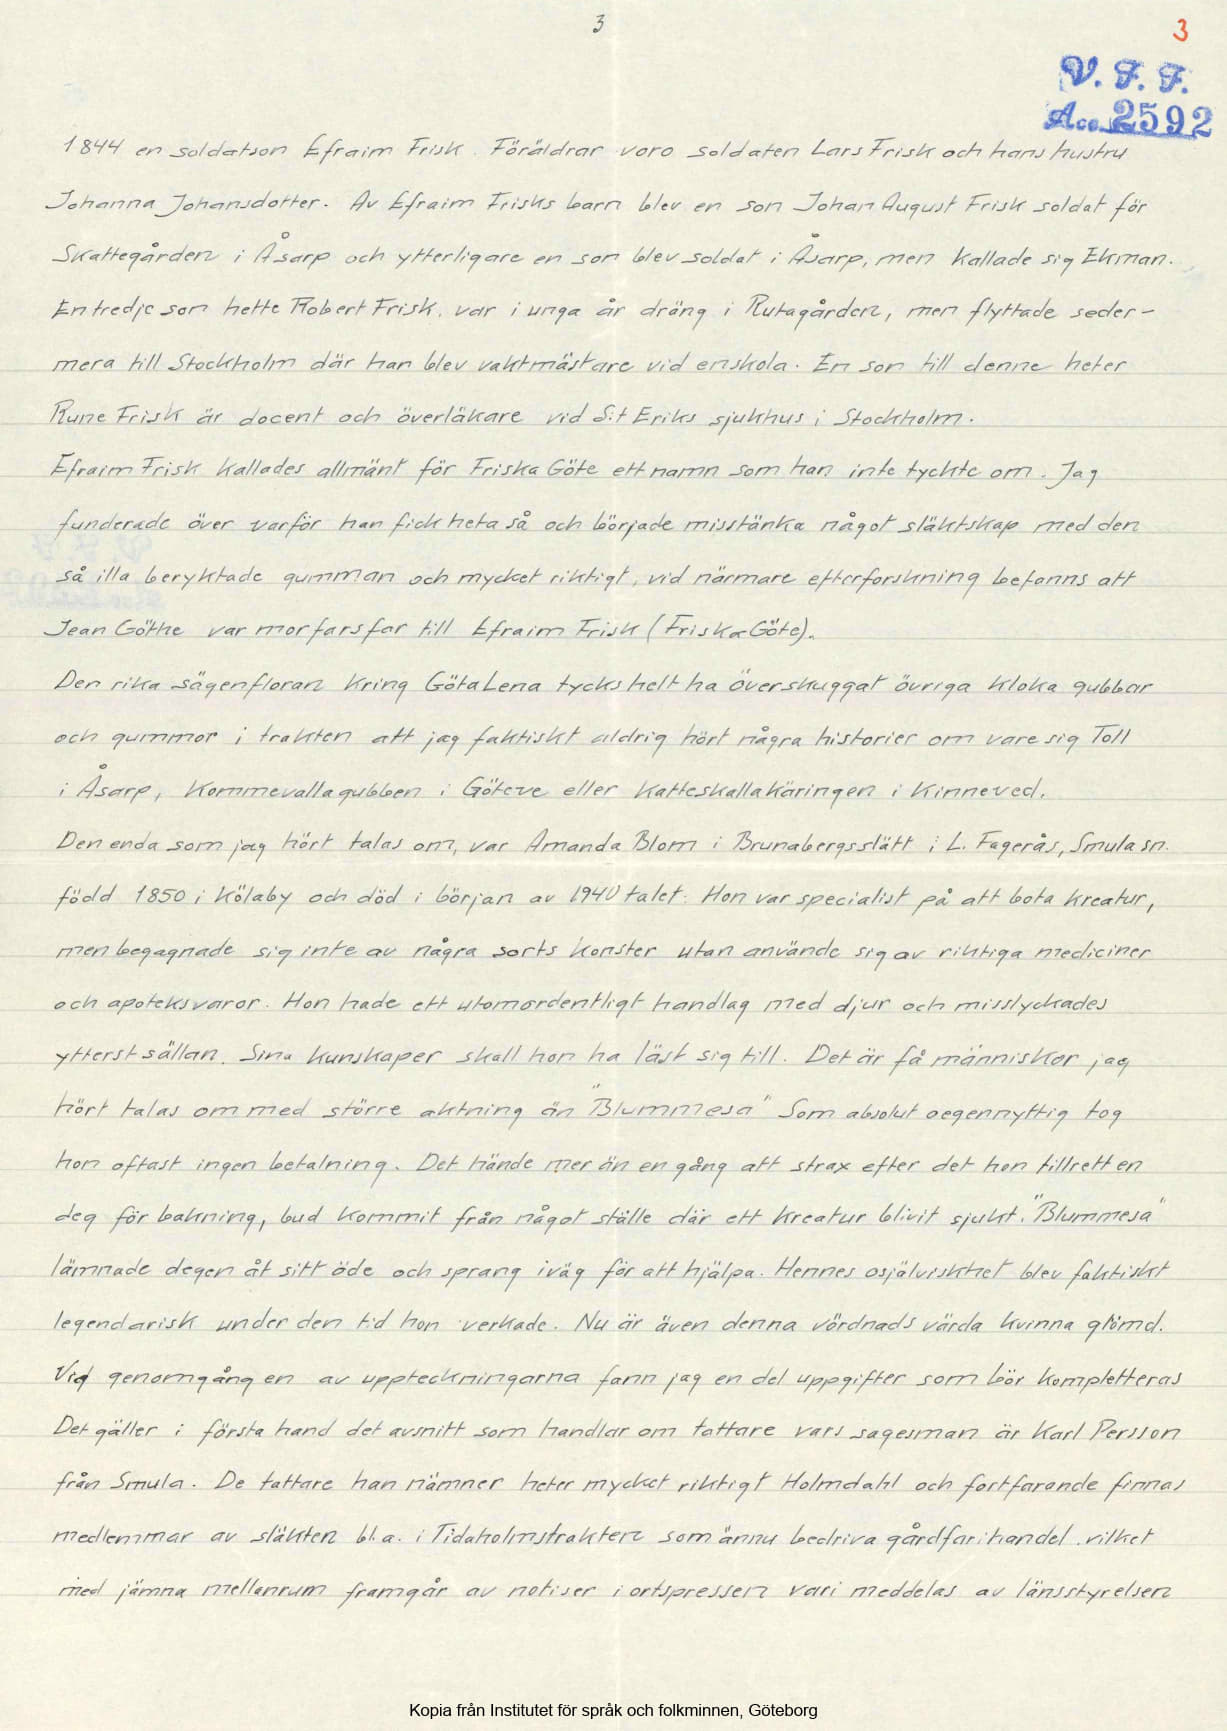 3
3
V. F. F.
Acc. 2592
1844 en soldatson Efraim Frisk. Föräldrar voro soldaten Lars Frisk och hans hustru
Johanna Johansdotter. Av Efraim Frisks barn blev en son Johan August Frisk soldat för
Skattegården i Åsarp och ytterligare en son blev soldat i Åsarp, men kallade sig Ekman.
En tredje son hette Robert Frisk, var i unga år dräng i Rutagården, men flyttade seder-
mera till Stockholm där han blev vaktmästare vid en skola. En son till denne heter
Rune Frisk är docent och överläkare vid S:t Eriks sjukhus i Stockholm.
Efraim Frisk kallades allmänt för Friska Göte ett namn som han inte tyckte om. Jag
funderade över varför han fick heta så och började misstänka något släktskap med den
så illa beryktade gumman och mycket riktigt, vid närmare efterforskning befanns att
Jean Göthe var morfarsfar till Efraim Frisk (Friska Göte).
Den rika sägenfloran kring Göta Lena tycks helt ha överskuggat övriga kloka gubbar
och gummor i trakten att jag faktiskt aldrig hört några historier om vare sig Toll
i Åsarp, Kommevallagubben i Göteve eller Katteskallakäringen i Kinneved.
Den enda som jag hört talas om, var Amanda Blom i Brunabergsslätt i L. Fagerås, Smula sn.
född 1850 i Kölaby och död i början av 1940 talet. Hon var specialist på att bota kreatur,
men begagnade sig inte av några sorts konster utan använde sig av riktiga mediciner
och apoteksvaror. Hon hade ett utomordentligt handlag med djur och misslyckades
ytterst sällan. Sina kunskaper skall hon ha läst sig till. Det är få människor jag
hört talas om med större aktning än "Blummesa" Som absolut oegennyttig tog
hon oftast ingen betalning. Det hände mer än en gång att strax efter det hon tillrett en
deg för bakning, bud kommit från något ställe där ett kreatur blivit sjukt. "Blummesa"
lämnade degen åt sitt öde och sprang iväg för att hjälpa. Hennes osjälviskhet blev faktiskt
legendarisk under den tid hon verkade. Nu är även denna vördnadsvärda kvinna glömd.
Vid genomgången av uppteckningarna fann jag en del uppgifter som bör kompletteras
Det gäller i första hand det avsnitt som handlar om tattare vars sagesman är Karl Persson
från Smula. De tattare han nämner heter mycket riktigt Holmdahl och fortfarande finnas
medlemmar av släkten bl.a. i Tidaholmstrakten som ännu bedriva gårdfarihandel, vilket
med jämna mellanrum framgår av notiser i ortspressen vari meddelas av länsstyrelsen
Kopia från Institutet för språk och folkminnen, Göteborg